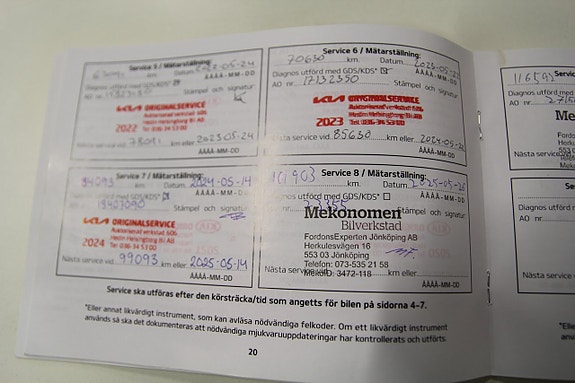 Service 5 / Mätarställning:
km. Datum 2022-05-24
Diagnos utförd med GDS/KDS* ÅÅÅÅ-MM-DD
AO nr Stämpel och signatur
KIA ORIGINALSERVICE
Auktoriserad verkstad 606
Hedin Helsingborg Bil AB
2022 Tel: 036-34 53 00
Nästa service vid 78091 km eller 2023-05-24
ÅÅÅÅ-MM-DD
Service 6 / Mätarställning:
70630 km. Datum
Diagnos utförd med GDS/KDS* ÅÅÅÅ-MM-DD
AO nr 17132350 Stämpel och signatur
KIA ORIGINALSERVICE
Auktoriserad verkstad 606
Hedin Helsingborg Bil AB
2023 Tel: 036-34 53 00
Nästa service vid 85630 km eller
ÅÅÅÅ-MM-DD
Service 7 / Mätarställning:
km. Datum 2024-05-14
Diagnos utförd med GDS/KDS* ÅÅÅÅ-MM-DD
AO nr 19407090 Stämpel och signatur
KIA ORIGINALSERVICE
Auktoriserad verkstad 606
Hedin Helsingborg Bil AB
2024 Tel: 036-34 53 00
Nästa service vid 99093 km eller 2025-05-14
ÅÅÅÅ-MM-DD
Service 8 / Mätarställning:
101903 km. Datum
Diagnos utförd med GDS/KDS* ÅÅÅÅ-MM-DD
Stämpel och signatur
Mekonomen
Bilverkstad
FordonsExperten Jönköping AB
Herkulesvägen 16
553 03 Jönköping
Telefon: 073-535 21 58
Nästa service MekoID: 3472-118 km eller
ÅÅÅÅ-MM-DD
Service ska utföras efter den körsträcka/tid som angetts för bilen på sidorna 4–7.
*Eller annat likvärdigt instrument, som kan avläsa nödvändiga felkoder. Om ett likvärdigt instrument
används så ska det dokumenteras att nödvändiga mjukvaruuppdateringar har kontrollerats och utförts.
20
Service
Diagnos utförd med
AO nr
Mekon
Nästa service
Diagnos utförd
AO nr
Nästa service vid